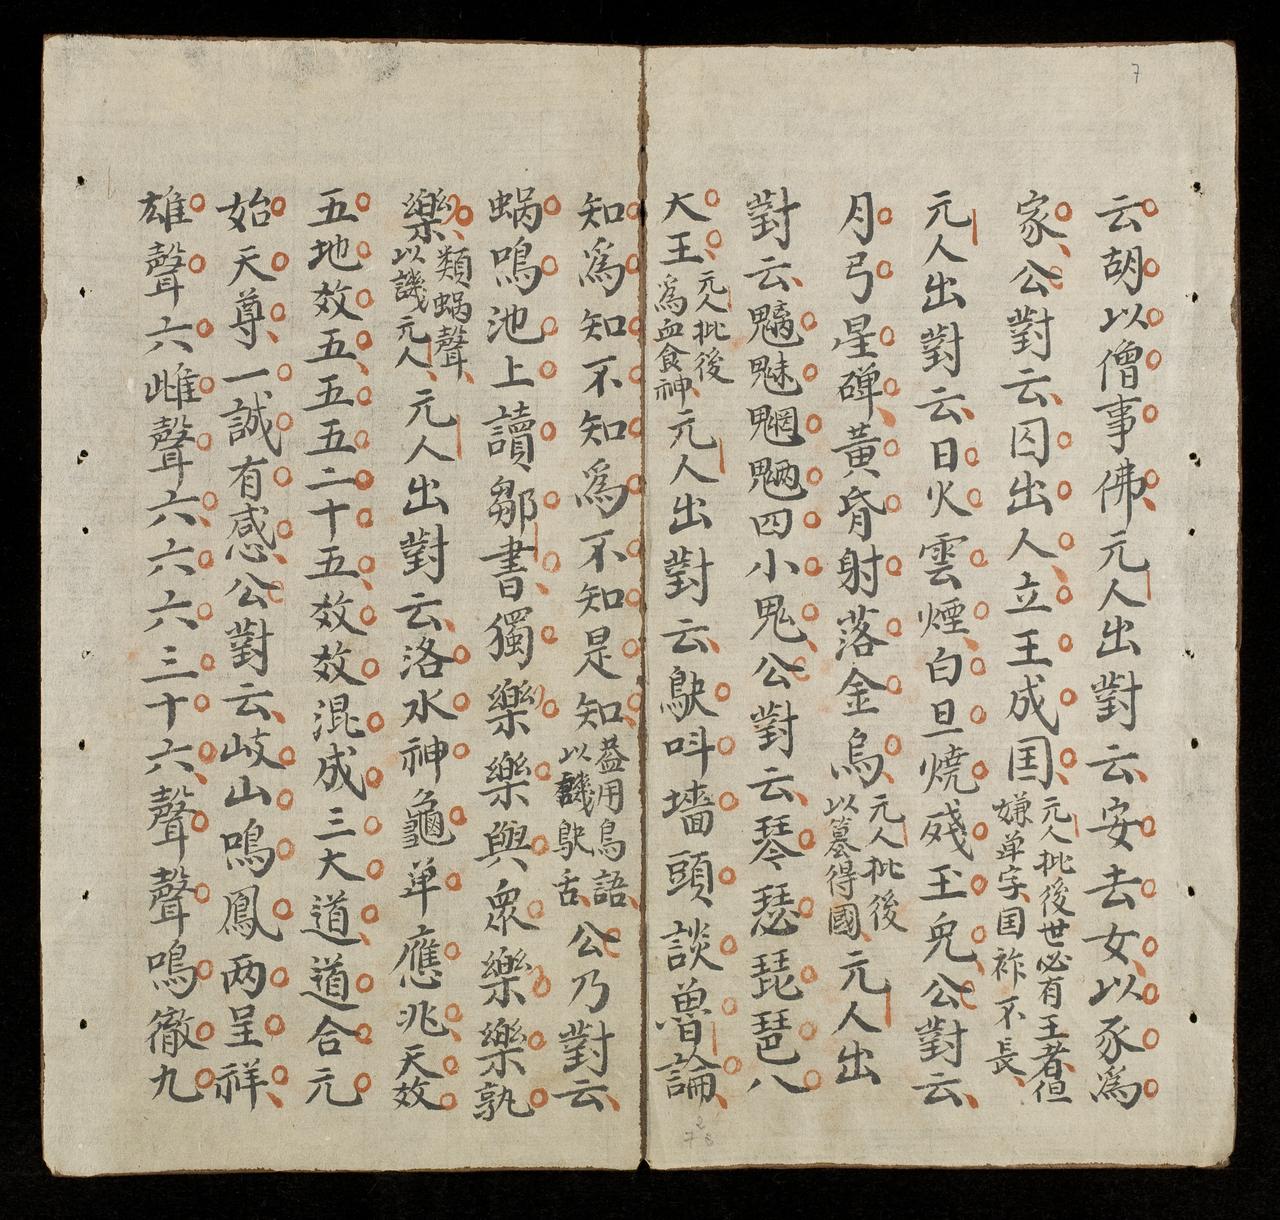 7
云胡以僧事佛元人出對云安去女以豕爲
家公對云囚出人立王成国元人批後世必有王者但
嫌单字国祚不長
元人出對云日火雲煙白旦燒殘玉兔公對云
月弓星磾黃昏射落金烏元人批後
以篡得國元人出
對云魑魅魍魎四小鬼公對云琴瑟琵琶八
大王元人批後
爲血食神元人出對云鴃呌墻頭談魯論
知爲知不知爲不知是知葢用鳥語
以譏鴃舌公乃對云
蝸鳴池上讀鄒書獨樂樂與眾樂樂孰
樂類蝸聲
以譏元人元人出對云洛水神龜单應兆天效
五地效五五五二十五效效混成三大道道合元
始天尊一誠有感公對云岐山鳴鳳两呈祥
雄聲六雌聲六六六三十六聲聲鳴徹九